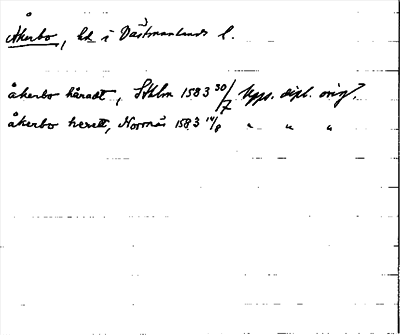 Å
Åkerbo, hd i Västmanlands l.
åkerbo häradt, Sthlm 1583 30/7 Upps. dipl. orig.
åkerbo herett, Noornäs 1583 14/8 " " "